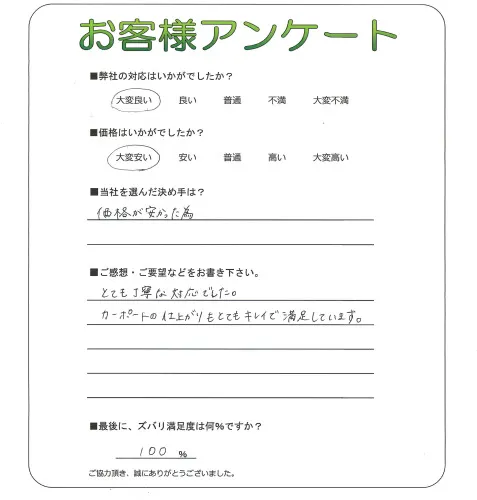 お客様アンケート
■弊社の対応はいかがでしたか？
大変良い 良い 普通 不満 大変不満
■価格はいかがでしたか？
大変安い 安い 普通 高い 大変高い
■当社を選んだ決め手は？
価格が安かった為
■ご感想・ご要望などをお書き下さい。
とても丁寧な対応でした。
カーポートの仕上がりもとてもキレイで満足しています。
■最後に、ズバリ満足度は何％ですか？
100 ％
ご協力頂き、誠にありがとうございました。